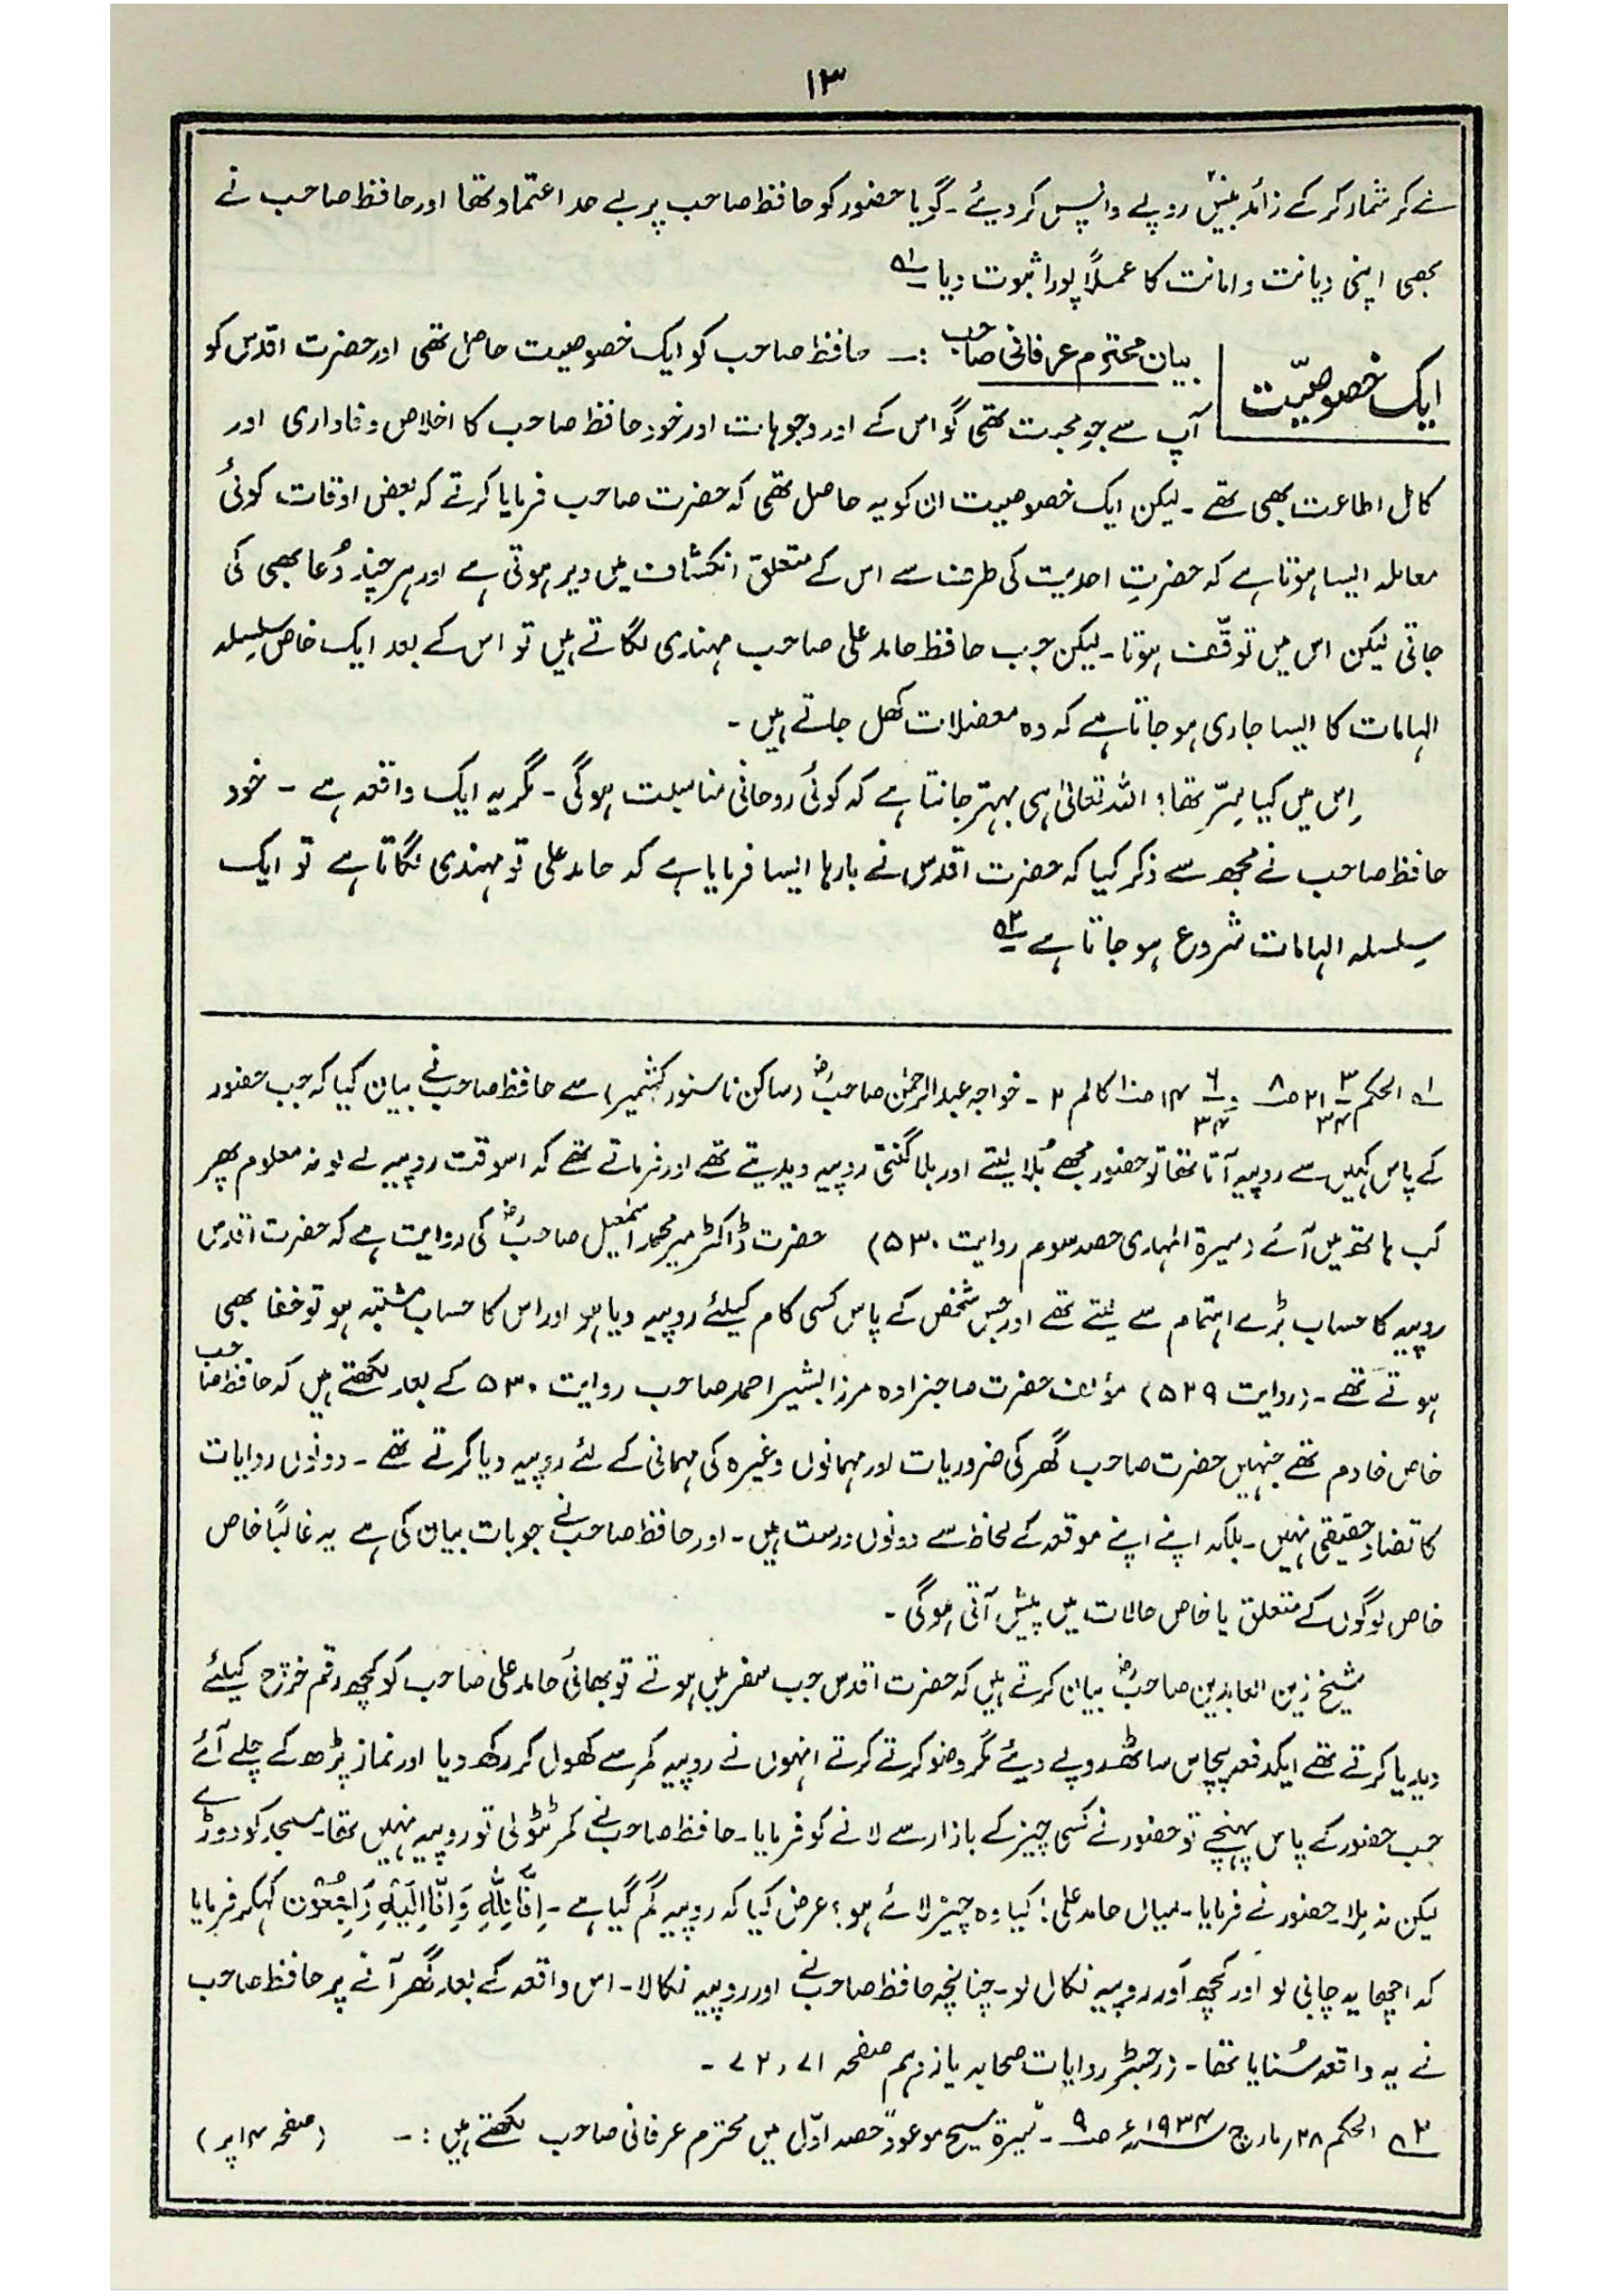 ۱۳
نے کر شمار کر کے زائد بیس روپے واپس کر دیئے۔ گویا حضور کو حافظ صاحب پر بے حد اعتماد تھا اور حافظ صاحب نے
بھی اپنی دیانت و امانت کا عملاً پورا ثبوت دیا ؎۱
ایک خصوصیّت
بیان محترم عرفانی صاحب :۔ حافظ صاحب کو ایک خصوصیت حاصل تھی اور حضرت اقدس کو
آپ سے جو محبت تھی گو اس کے اور وجوہات اور خود حافظ صاحب کا اخلاص وفاداری اور
کامل اطاعت بھی تھے۔ لیکن ایک خصوصیت ان کو یہ حاصل تھی کہ حضرت صاحب فرمایا کرتے کہ بعض اوقات کوئی
معاملہ ایسا ہوتا ہے کہ حضرتِ احدیت کی طرف سے اس کے متعلق انکشاف میں دیر ہوتی ہے اور ہر چند دُعا بھی کی
جاتی لیکن اس میں توقّف ہوتا۔ لیکن جب حافظ حامد علی صاحب مہندی لگاتے ہیں تو اس کے بعد ایک خاص سلسلہ
الہامات کا ایسا جاری ہو جاتا ہے کہ وہ معضلات کھل جاتے ہیں۔
اِس میں کیا سِرّ تھا؟ اللہ تعالیٰ ہی بہتر جانتا ہے کہ کوئی روحانی مناسبت ہوگی۔ مگر یہ ایک واقعہ ہے ۔ خود
حافظ صاحب نے مجھ سے ذکر کیا کہ حضرت اقدس نے بارہا ایسا فرمایا ہے کہ حامد علی تو مہندی لگاتا ہے تو ایک
سِلسلہ الہامات شروع ہو جاتا ہے ؎۲
؎۱ الحکم ۲۱/۳/۳۴ صـ ۸ و ۱۴/۶/۳۴ صـ کالم ۲ ۔ خواجہ عبدالرحمٰن صاحبؓ (ساکن ناسنور کشمیر) سے حافظ صاحب نے بیان کیا کہ جب حضور
کے پاس کہیں سے روپیہ آتا تھا تو حضور مجھے بُلا لیتے اور بلا گنتی روپیہ دیدیتے تھے اور فرماتے تھے کہ اسوقت روپیہ لے لو نہ معلوم پھر
کب ہاتھ میں آئے (سیرۃ المہدی حصہ سوم روایت ۵۳۰) حضرت ڈاکٹر میر محمد اسمٰعیل صاحبؓ کی روایت ہے کہ حضرت اقدس
روپیہ کا حساب بڑے اہتمام سے لیتے تھے اور جس شخص کے پاس کسی کام کیلئے روپیہ دیا ہو اور اس کا حساب مشتبہ ہو تو خفا بھی
ہوتے تھے۔ (روایت ۵۲۹) مؤلف حضرت صاحبزادہ مرزا بشیر احمد صاحب روایت ۵۳۰ کے بعد لکھتے ہیں کہ حافظ صاحب
خاص خادم تھے جنہیں حضرت صاحب گھر کی ضروریات اور مہمانوں وغیرہ کی مہمانی کے لئے روپیہ دیا کرتے تھے۔ دونوں روایات
کا تضاد حقیقی نہیں۔ بلکہ اپنے اپنے موقعہ کے لحاظ سے دونوں درست ہیں۔ اور حافظ صاحب نے جو بات بیان کی ہے یہ غالباً خاص
خاص لوگوں کے متعلق یا خاص حالات میں پیش آتی ہوگی۔
شیخ زین العابدین صاحبؓ بیان کرتے ہیں کہ حضرت اقدس جب سفر میں ہوتے تو بھائی حامد علی صاحب کو کچھ رقم خرچ کیلئے
دیدیا کرتے تھے ایکدفعہ پچاس ساٹھ روپے دیئے مگر وضو کرتے کرتے انہوں نے روپیہ کمر سے کھول کر رکھ دیا اور نماز پڑھ کے چلے آئے
جب حضور کے پاس پہنچے تو حضور نے کسی چیز کے بازار سے لانے کو فرمایا۔ حافظ صاحب نے کمر ٹٹولی تو روپیہ نہیں تھا۔ مسجد کو دوڑے
لیکن نہ مِلا۔ حضور نے فرمایا۔ میاں حامد علی! کیا وہ چیز لائے ہو؟ عرض کیا کہ روپیہ گُم گیا ہے۔ اِنَّا لِلّٰهِ وَاِنَّا اِلَيْهِ رَاجِعُوْن کہکر فرمایا
کہ اچھا یہ چابی لو اور کچھ اَور روپیہ نکال لو۔ چنانچہ حافظ صاحب نے اور روپیہ نکالا۔ اس واقعہ کے بعد گھر آنے پر حافظ صاحب
نے یہ واقعہ سُنایا تھا۔ (رجسٹر روایات صحابہ یازدہم صفحہ ۷۱، ۷۲ ۔
؎۲ الحکم ۲۸ ؍ مارچ ۱۹۳۴ء صـ ۹ ۔ سیرۃ مسیح موعودؑ حصہ اوّل میں محترم عرفانی صاحب لکھتے ہیں :۔ (صفحہ ۱۴ پر)